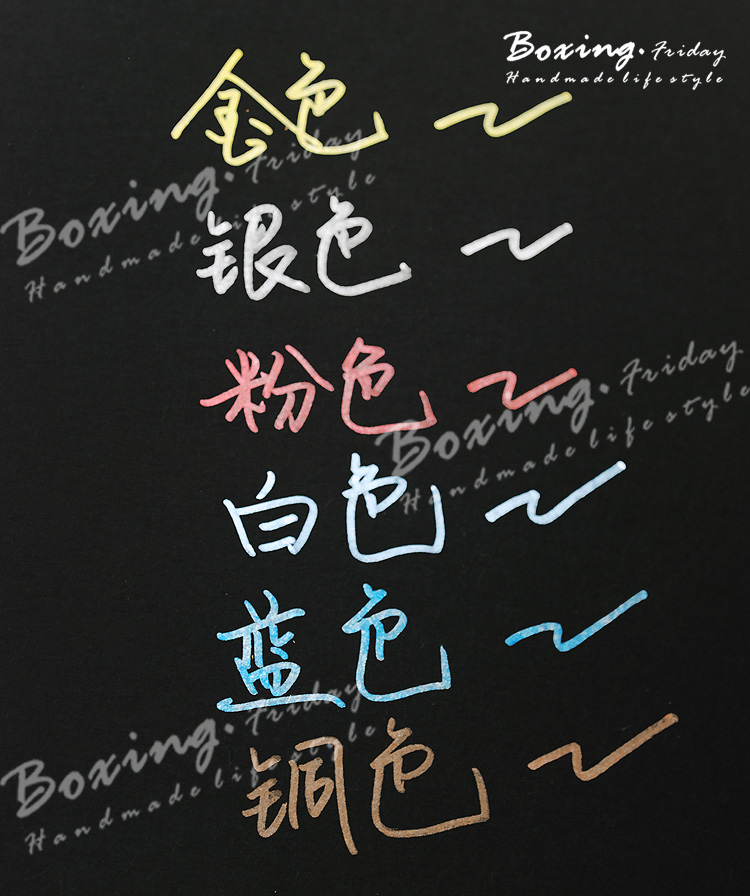 Boxing. Friday
Handmade life style
金色
Boxing. Friday
Handmade life style
银色
粉色
Boxing. Friday
Handmade life style
白色
蓝色
Boxing. Friday
Handmade life style
铜色